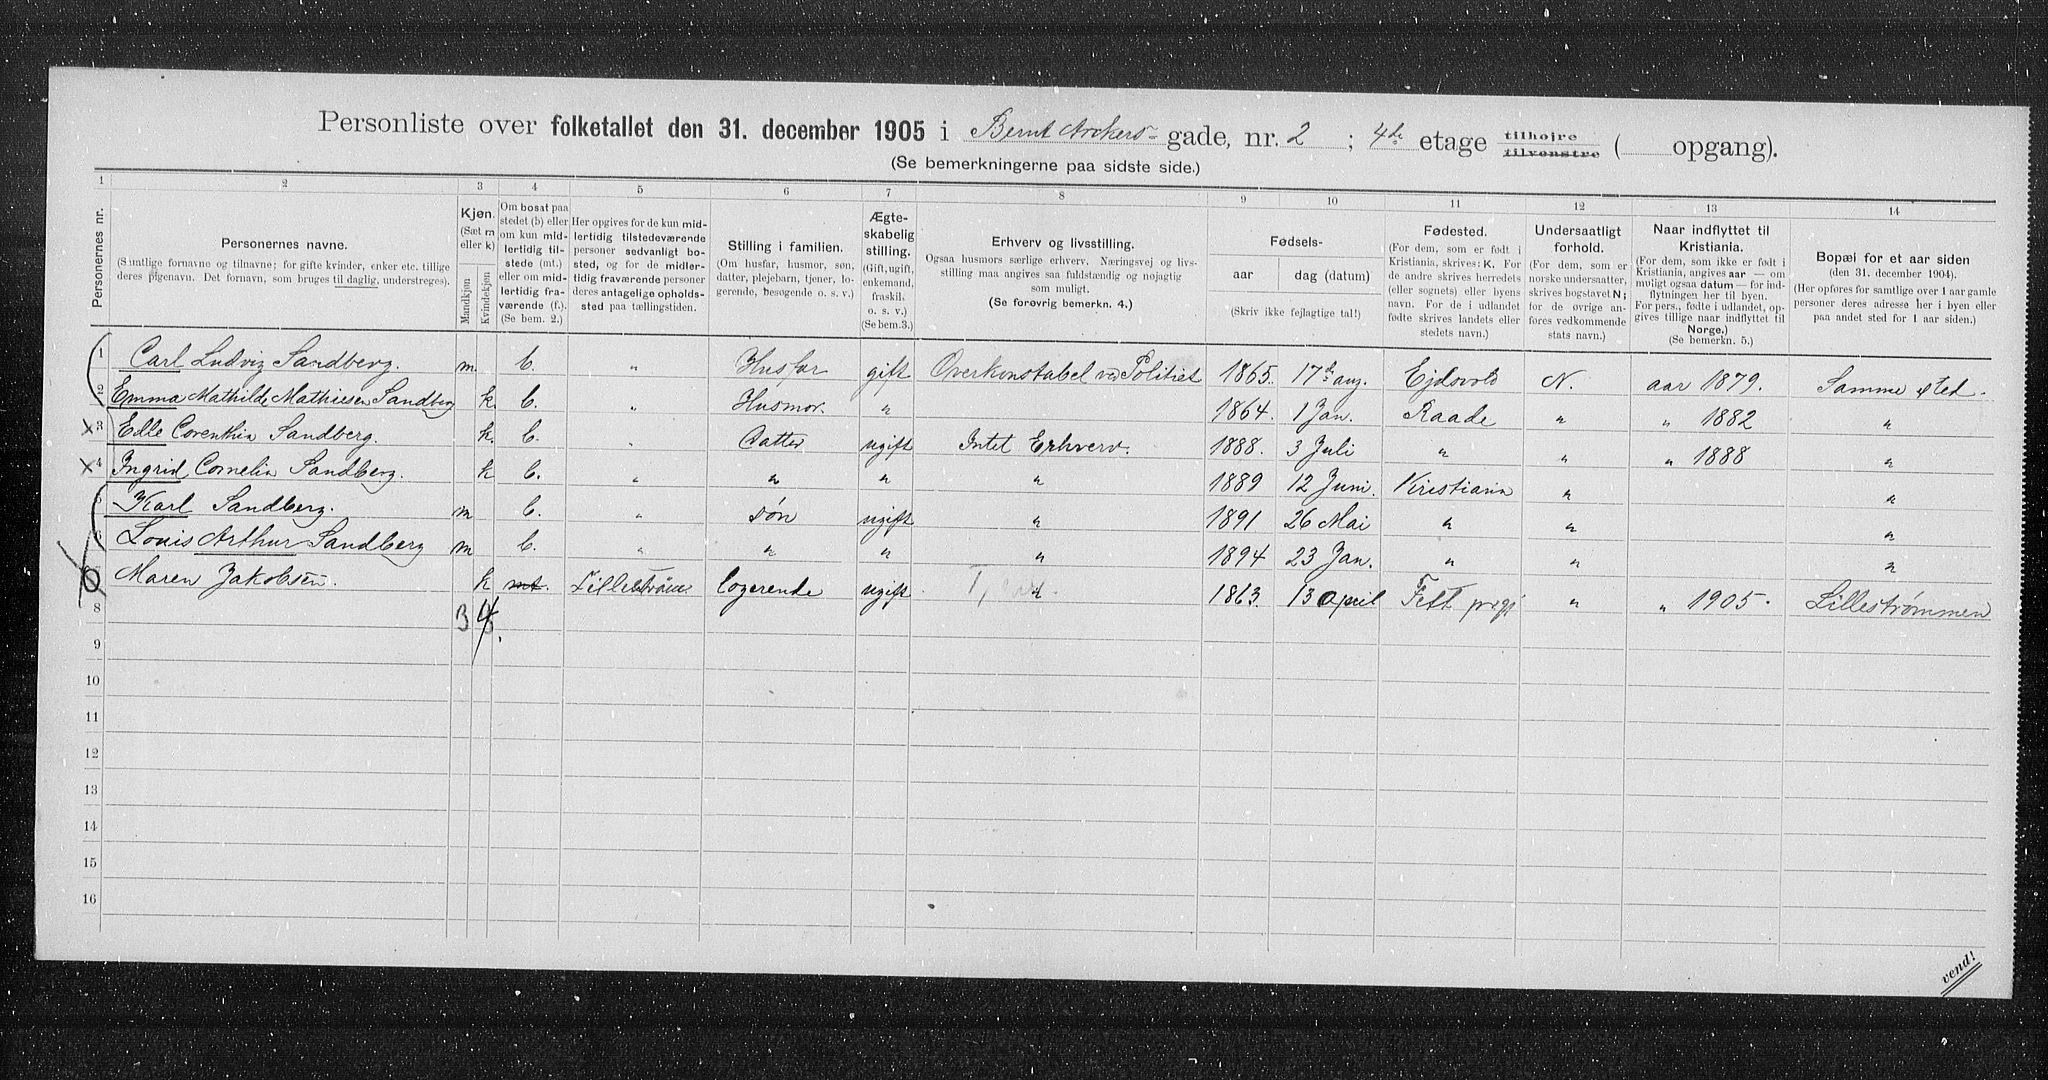 Personliste over folketallet den 31. december 1905 i Bernt Ankers- gade, nr. 2 ; 4de etage tilhøire tilvenstre ( opgang).
(Se bemerkningerne paa sidste side.)
1 2 3 4 5 6 7 8 9 10 11 12 13 14
Personernes nr.
Personernes navne.
(Samtlige fornavne og tilnavne; for gifte kvinder, enker etc. tillige
deres pigenavn. Det fornavn, som bruges til daglig, understreges).
Kjøn.
(Sæt m
eller k)
Mandkjøn
Kvindekjøn
Om bosat paa
stedet (b) eller
om kun mid-
lertidig til-
stede (mt.)
eller om mid-
lertidig fra-
værende (f.).
(Se bem. 2.)
Her opgives for de kun mid-
lertidig tilstedeværende
personer sedvanlig bo-
sted, og for de midler-
tidig fraværende personer
deres antagelige opholds-
sted paa tællingstiden.
Stilling i familien.
(Om husfar, husmor, søn,
datter, plejebarn, tjener, lo-
gerende, besøgende o. s. v.)
Ægte-
skabelig
stilling.
(Gift, ugift,
enkemand,
fraskil.
o. s. v.)
(Se bem.3.)
Erhverv og livsstilling.
Ogsaa husmors særlige erhverv. Næringsvej og livs-
stilling maa angives saa fuldstændig og nøjagtig
som muligt.
(Se forøvrig bemerkn. 4.)
Fødsels-
aar dag (datum)
(Skriv ikke fejlagtige tal!)
Fødested.
(For dem, som er født i
Kristiania, skrives: K. For
de andre skrives herredets
(eller sognets) eller byens
navn. For de i udlandet
fødte skrives landets eller
stedets navn.)
Undersaatligt
forhold.
(For dem, som er
norske undersaatter,
skrives bogstavet N;
for de øvrige an-
føres vedkommende
stats navn.)
Naar indflyttet til
Kristiania.
(For dem, som ikke er født i
Kristiania, angives aar — om
muligt ogsaa datum — for ind-
flytningen her til byen.
For pers., fødte i udlandet, op-
gives tillige naar indflyttet til
Norge.)
(Se bemerkn. 5.)
Bopæl for et aar siden
(den 31. december 1904).
(Her opføres for samtlige over 1 aar gamle
personer deres adresse her i byen eller
paa andet sted for 1 aar siden.)
1 Carl Ludvig Sandberg. m. b. " Husfar gift Overkonstabel ved Politiet 1865. 17de aug. Ejdsvold N. aar 1879. Samme sted.
2 Emma Mathilde Mathiesen Sandberg k. b. " Husmor. " 1864. 1 Jan. Raade " " 1882 "
3 Edle Corenthin Sandberg. k. b. " Datter ugift Intet Erhverv. 1888. 3 Juli " " " 1888 "
4 Ingrid Cornelia Sandberg. k b. " " " " 1889 12 Juni. Kristiania " "
5 Karl Sandberg. m b. " søn ugift " 1891 26 Mai " " "
6 Louis Arthur Sandberg m b. " " " " 1894 23 Jan. " " "
Maren Jakobsen. k mt. Lillestrøm logerende ugift " 1863. 13 april Fett prgj " " 1905. Lillestrømmen
8 3 4
9
10
11
12
13
14
15
16
vend!